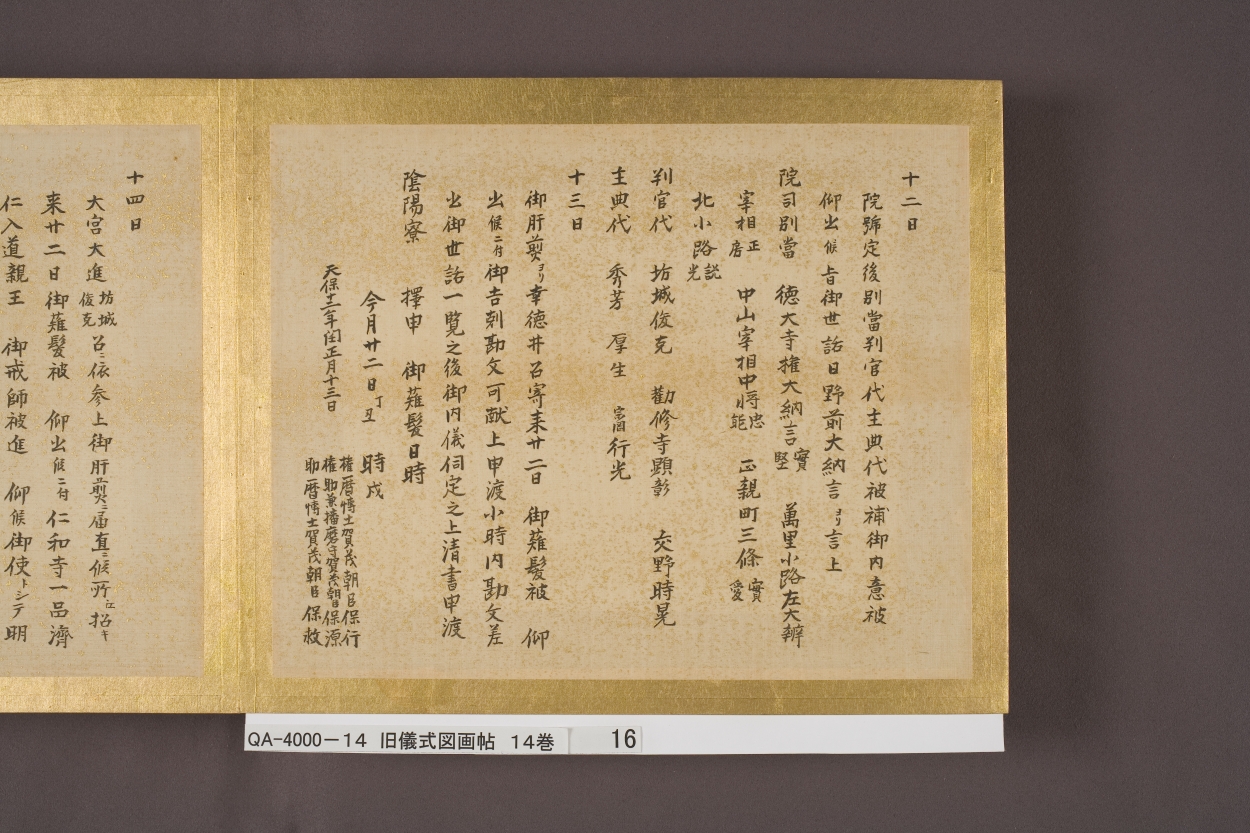 十二日
院號定後別當判官代主典代被補御内意被
仰出候旨御世話日野前大納言ヨリ言上
院司別當 徳大寺権大納言實堅 萬里小路左大辨
宰相正房 中山宰相中将忠能 正親町三條實愛
北小路説光
判官代 坊城俊克 勸修寺顕彰 交野時晃
主典代 秀芳 厚生 行光
十三日
御肝煎ヨリ幸徳井召寄来廿二日 御薙髪被 仰
出候ニ付御吉剋勘文可献上申渡小時内勘文差
出御世話一覧之後御内儀伺定之上清書申渡
陰陽寮 擇申 御薙髪日時
今月廿二日丁丑 時戌
天保十二年閏正月十三日
権暦博士賀茂朝臣保行
権助兼播磨守賀茂朝臣保源
助暦博士賀茂朝臣保救
十四日
大宮大進坊城俊克召ニ依参上御肝煎ニ届直ニ候所江招キ
来廿二日御薙髪被 仰出候ニ付仁和寺一品濟
仁入道親王 御戒師被進 仰候御使トシテ明
QA-4000-14 旧儀式図画帖 14巻 16